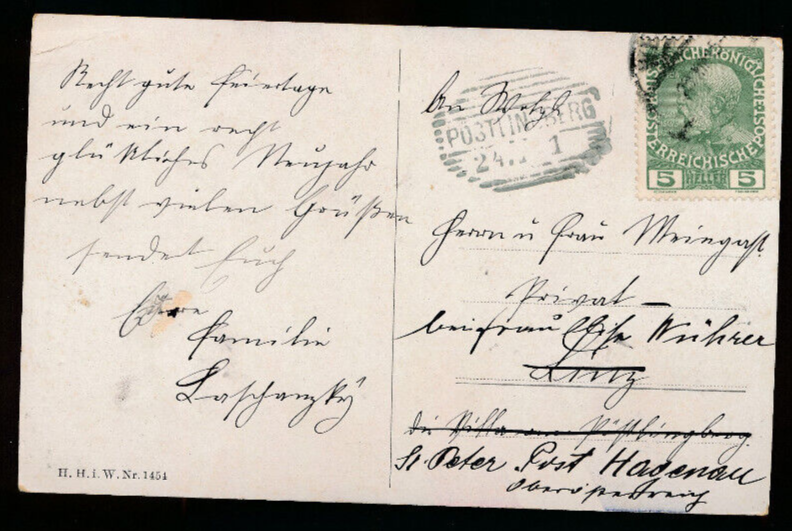 Recht gute Feiertage
und ein recht
glückliches Neujahr
nebst vielen Grüßen
sendet Euch
Eure
Familie
Laschanzky
H. H. i. W. Nr. 1454
An Wohlg
PÖSTLINGBERG
24. 1
KAISERLICHE KÖNIGLICHE
ÖSTERREICHISCHE POST
5 HELLER 5
Herrn u Frau Weingast
Privat
bei Frau Wührer
Linz
die Villa am Pöstlingberg
St. Peter Post Hagenau
Oberösterreich